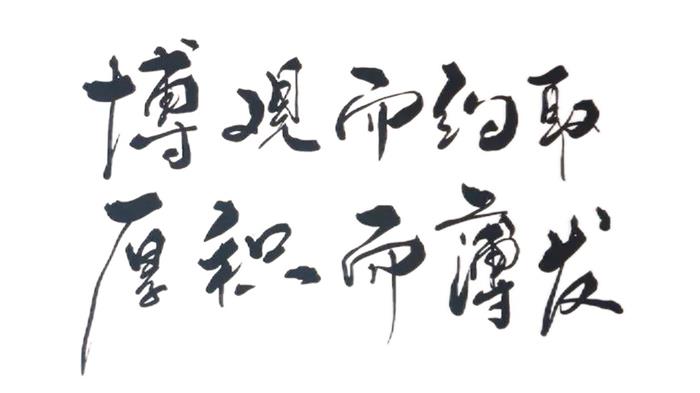 博观而约取
厚积而薄发